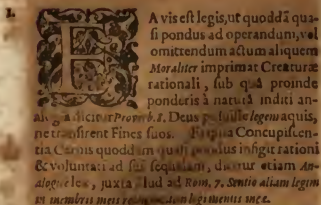 I.
EA vis est legis, ut quoddā qua-
si pondus ad operandum, vel
omittendum actum aliquem
Moraliter imprimat Creaturæ
rationali, sub quâ proinde
ponderis à naturâ inditi an-
dicitur Proverb. 8. Deus legem aquis,
ne transirent Fines suos. Concupiscen-
tia Carnis quoddam quasi pondus infigit rationi
& voluntati ad sequelam, dicitur etiam Ana-
logue lex, juxta illud ad Rom, 7. Sentio aliam legem
in membris meis legi mentis meæ.